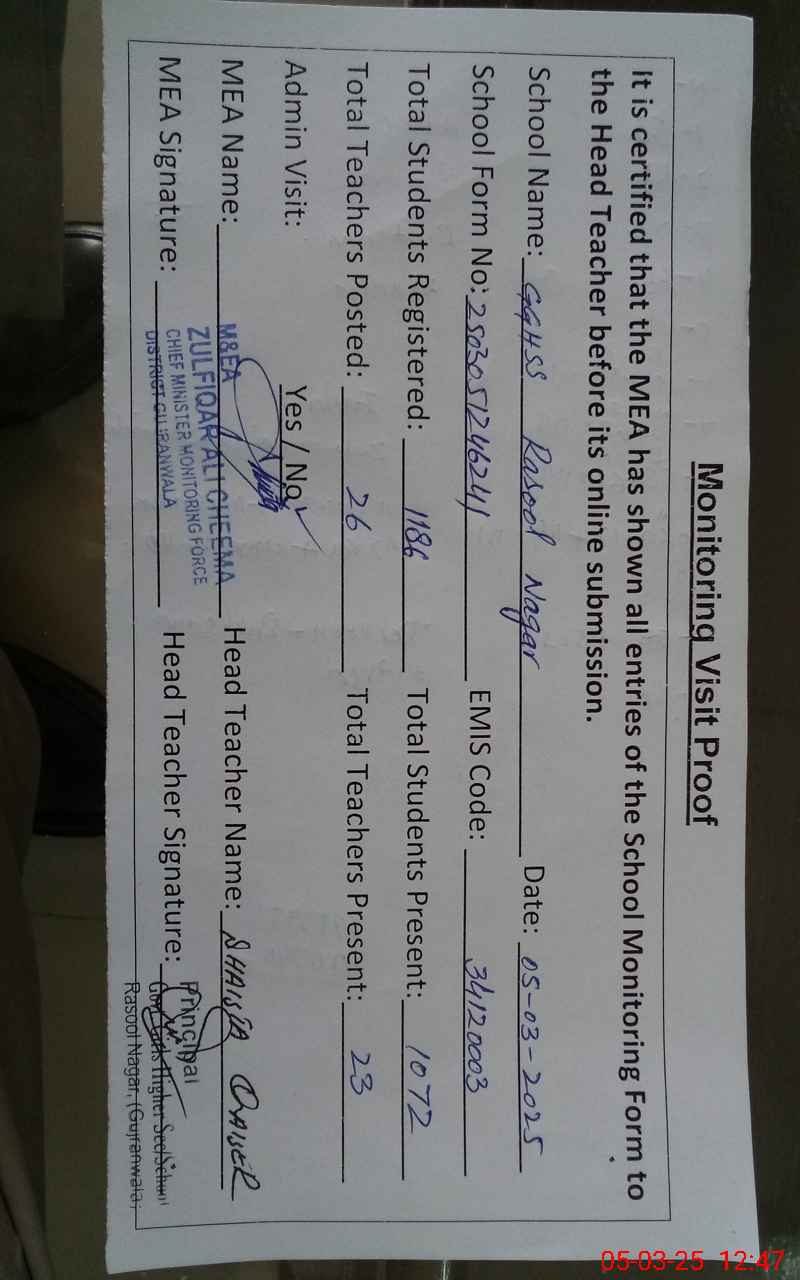 Monitoring Visit Proof
It is certified that the MEA has shown all entries of the School Monitoring Form to
the Head Teacher before its online submission.
School Name: GGHSS Rasool Nagar Date: 05-03-2025
School Form No: 2503051246241 EMIS Code: 34120003
Total Students Registered: 1186 Total Students Present: 1072
Total Teachers Posted: 26 Total Teachers Present: 23
Admin Visit: Yes / No ✓
MEA Name: Head Teacher Name: SHAISTA QAISER
M&EA
ZULFIQAR ALI CHEEMA
CHIEF MINISTER MONITORING FORCE
DISTRICT GUJRANWALA
MEA Signature: Head Teacher Signature:
Principal
Govt. Girls Higher Sec/School
Rasool Nagar, (Gujranwala)
05-03-25 12:47